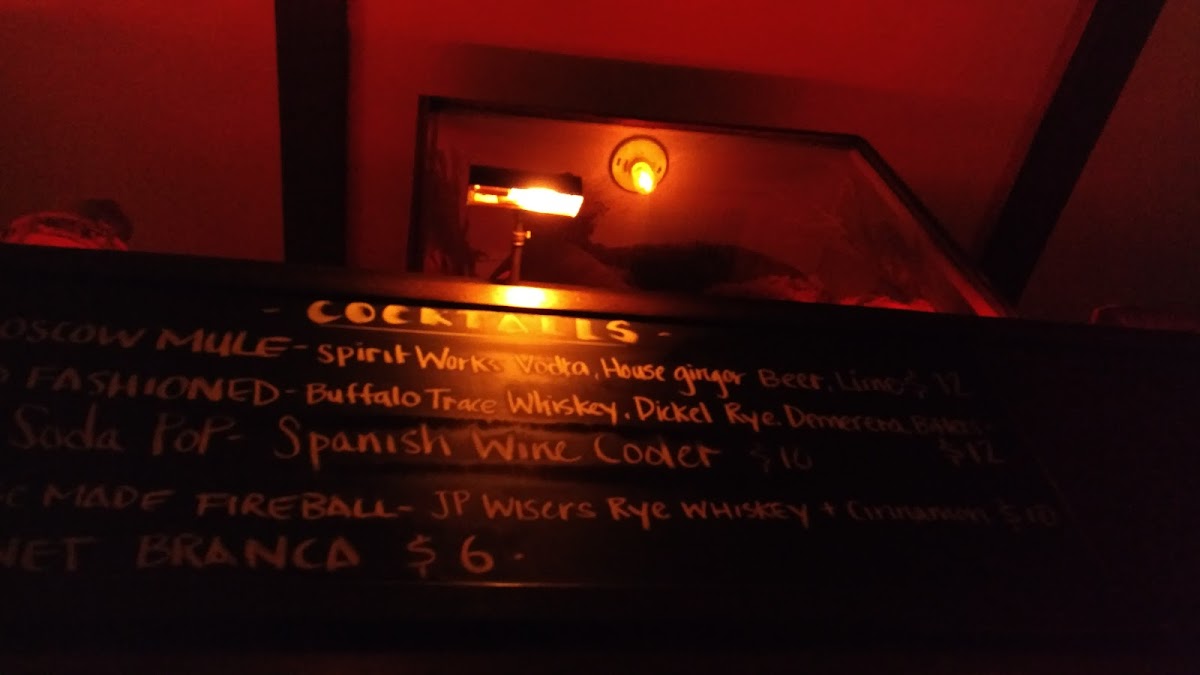 - COCKTAILS -
OSCOW MULE - Spirit Works Vodka, House ginger Beer, Lime $12
FASHIONED - Buffalo Trace Whiskey, Dickel Rye, Demerera,
$12
Soda PoP - Spanish Wine Cooler $10
MADE FIREBALL - JP Wisers Rye WHISKEY + Cinnamon $10
NET BRANCA $6.